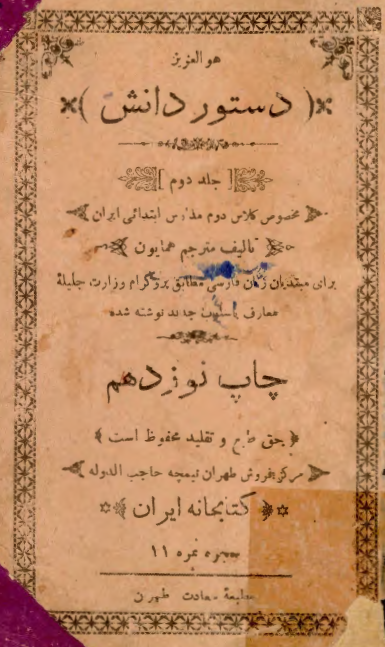 هو العزیز
( دستور دانش )
[ جلد دوم ]
مخصوص کلاس دوم مدارس ابتدائی ایران
تالیف مترجم همایون
برای مبتدیان زبان فارسی مطابق پروگرام وزارت جلیلهٔ
معارف باسلوب جدید نوشته شده
چاپ نوزدهم
حق طبع و تقلید محفوظ است
مرکز فروش طهران تیمچه حاجب الدوله
کتابخانه ایران
نمره ۱۱
مطبعهٔ سعادت طهرن